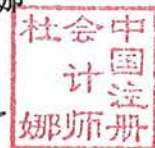 中国注册
会计师
杜娜